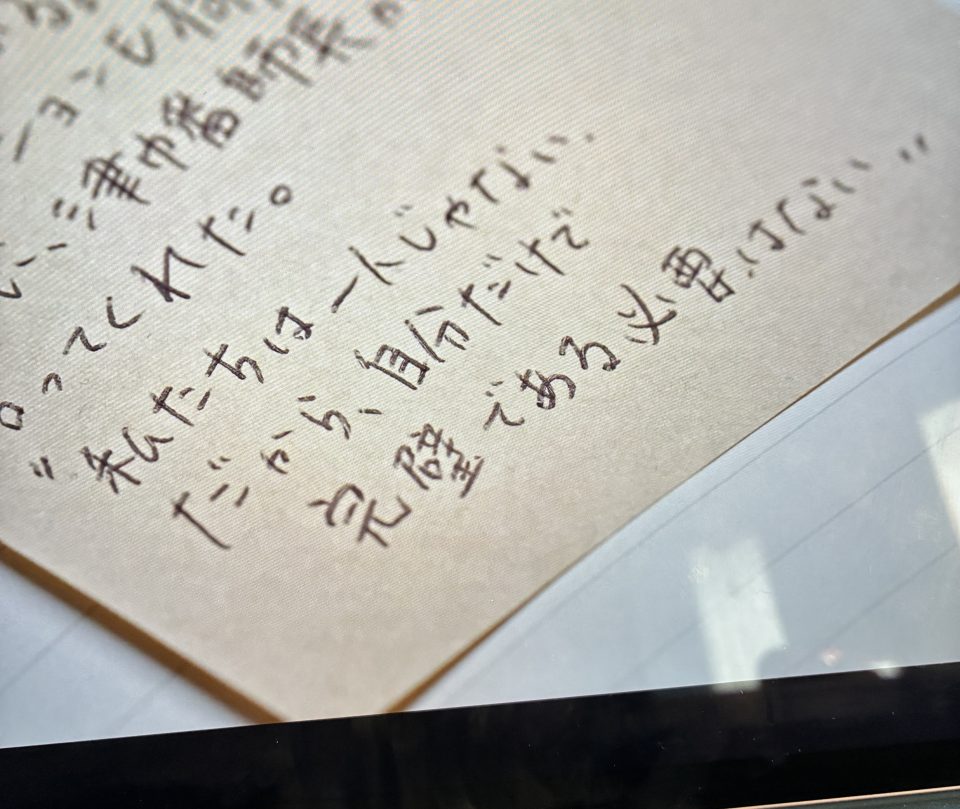 ーョンも
津中看師長
ってくれた。
"私たちは一人じゃない.
だから、自分だけで
完璧である必要はない"